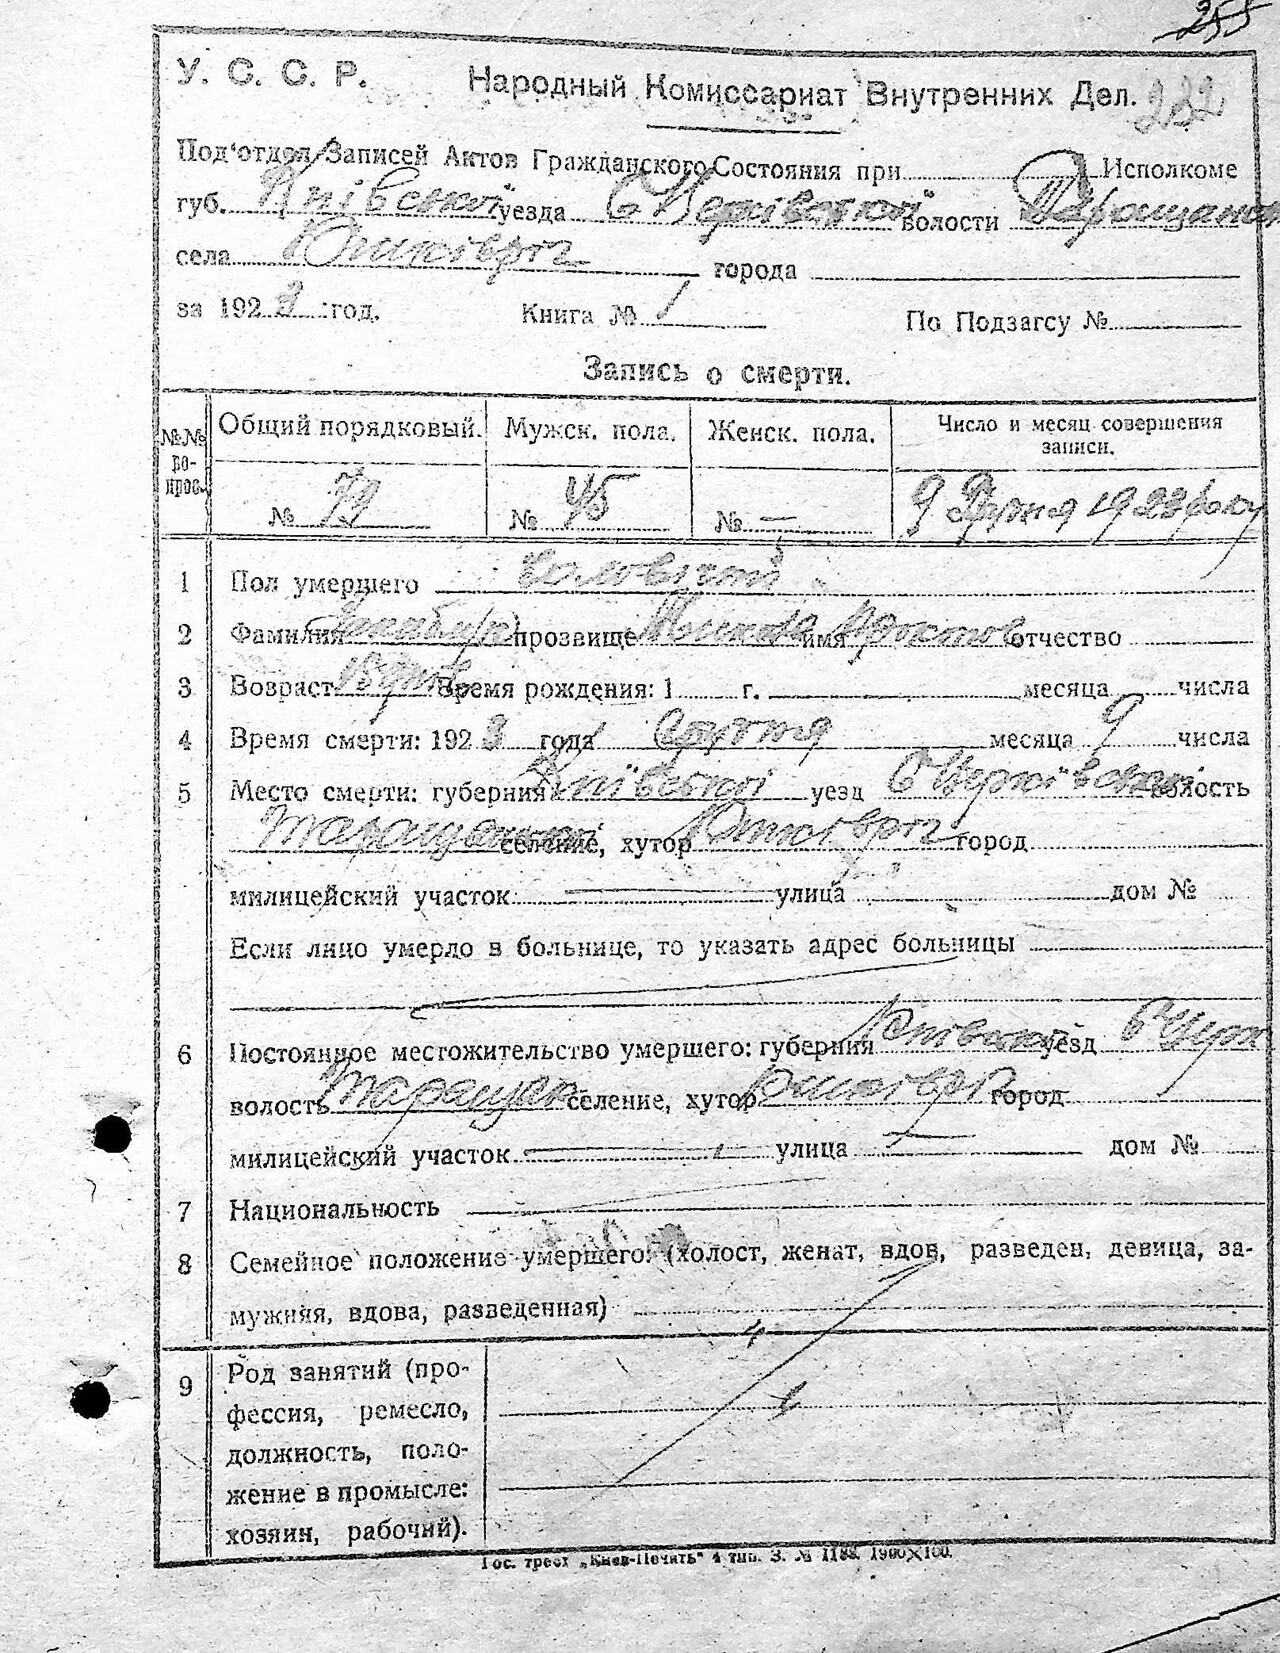 255
У. С. С. Р. Народный Комиссариат Внутренних Дел. 232
Под'отдел Записей Актов Гражданского Состояния при Исполкоме
губ. Київської уезда волости
села Юшків Ріг города
за 1923 год. Книга № 1 По Подзагсу №
Запись о смерти.
№№ во- прос. Общий порядковый. Мужск. пола. Женск. пола. Число и месяц совершения записи.
№ 79 № 45 № — 9 Грудня 1923 року
1 Пол умершего Чоловічий
2 Фамилия прозвище имя отчество
3 Возраст Время рождения: 1 г. месяца числа
4 Время смерти: 1923 года Грудня месяца 9 числа
5 Место смерти: губерния Київської уезд волость
селение, хутор Юшків Ріг город
милицейский участок улица дом №
Если лицо умерло в больнице, то указать адрес больницы
6 Постоянное местожительство умершего: губерния Київської уезд
волость Таращан селение, хутор Юшків Ріг город
милицейский участок улица дом №
7 Национальность
8 Семейное положение умершего: (холост, женат, вдов, разведен, девица, за-
мужняя, вдова, разведенная)
9 Род занятий (про-
фессия, ремесло,
должность, поло-
жение в промысле:
хозяин, рабочий).
Гос. трест „Киев-Печать" 4 тип. З. № 1188. 1900×100.